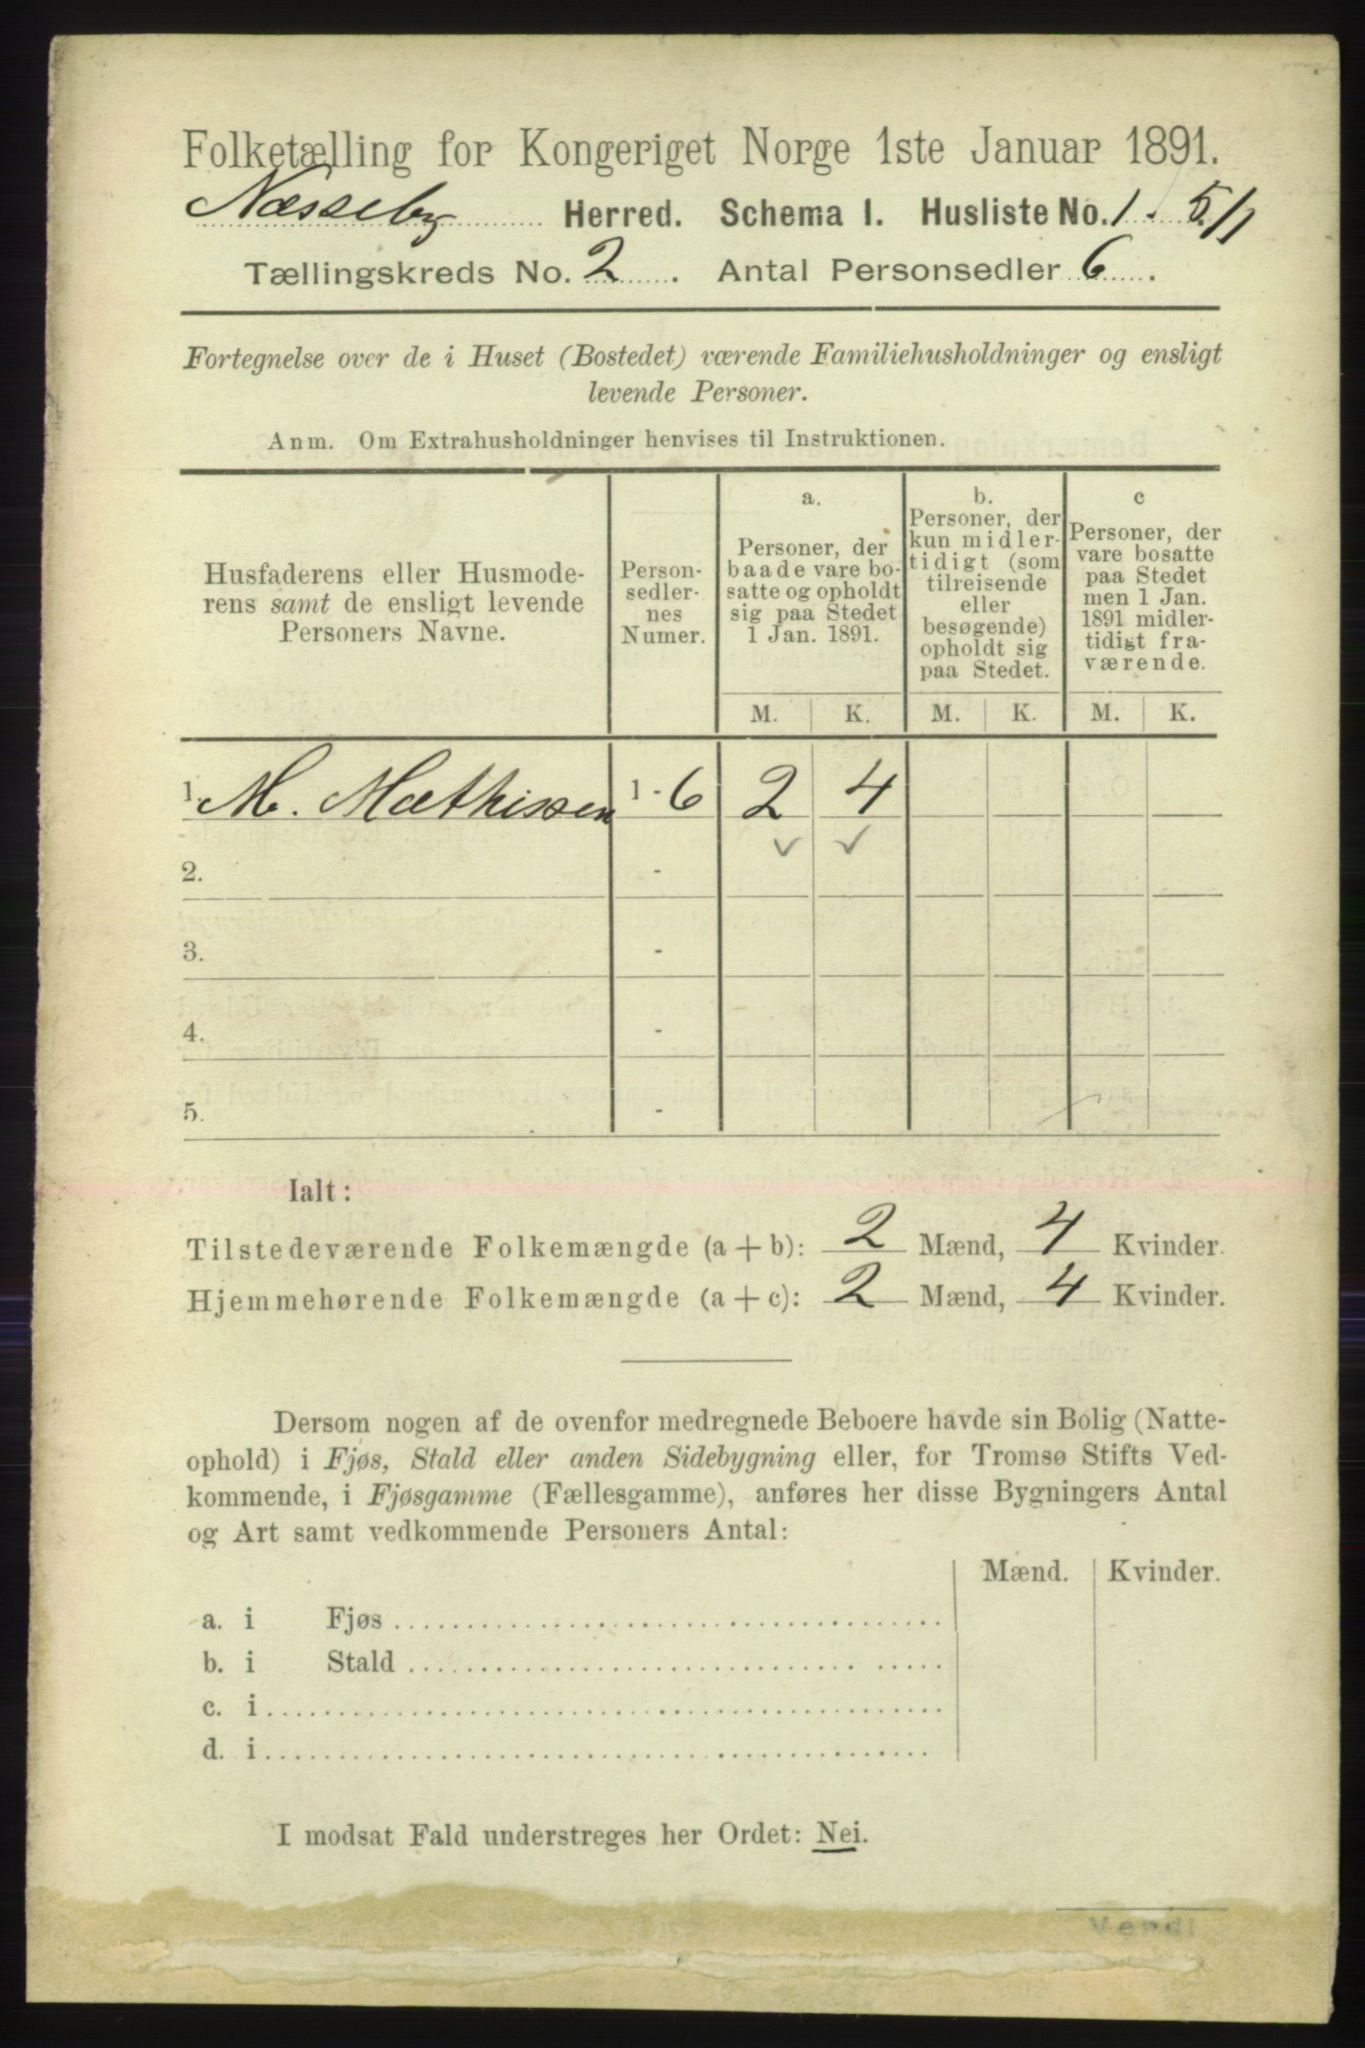 Folketælling for Kongeriget Norge 1ste Januar 1891.
Næsseby Herred. Schema I. Husliste No. 1. 5/1
Tællingskreds No. 2. Antal Personsedler 6.
Fortegnelse over de i Huset (Bostedet) værende Familiehusholdninger og ensligt
levende Personer.
Anm. Om Extrahusholdninger henvises til Instruktionen.
Husfaderens eller Husmode-
rens samt de ensligt levende
Personers Navne.
Person-
sedler-
nes
Numer.
a.
Personer, der
baade vare bo-
satte og opholdt
sig paa Stedet
1 Jan. 1891.
b.
Personer, der
kun midler-
tidigt (som
tilreisende
eller
besøgende)
opholdt sig
paa Stedet.
c
Personer, der
vare bosatte
paa Stedet
men 1 Jan.
1891 midler-
tidigt fra-
værende.
M. K. M. K. M. K.
1. M. Mathissen 1-6 2 4
2. -
3. -
4. -
5. -
Ialt:
Tilstedeværende Folkemængde (a + b): 2 Mænd, 4 Kvinder.
Hjemmehørende Folkemængde (a + c): 2 Mænd, 4 Kvinder.
Dersom nogen af de ovenfor medregnede Beboere havde sin Bolig (Natte-
ophold) i Fjøs, Stald eller anden Sidebygning eller, for Tromsø Stifts Ved-
kommende, i Fjøsgamme (Fællesgamme), anføres her disse Bygningers Antal
og Art samt vedkommende Personers Antal:
Mænd. Kvinder.
a. i Fjøs
b. i Stald
c. i
d. i
I modsat Fald understreges her Ordet: Nei.
Vend!